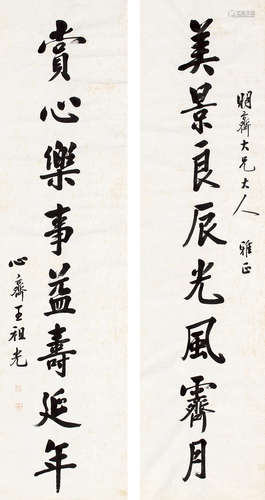 美景良辰光風霽月
明齋大兄大人 雅正
賞心樂事益壽延年
心齋王祖光